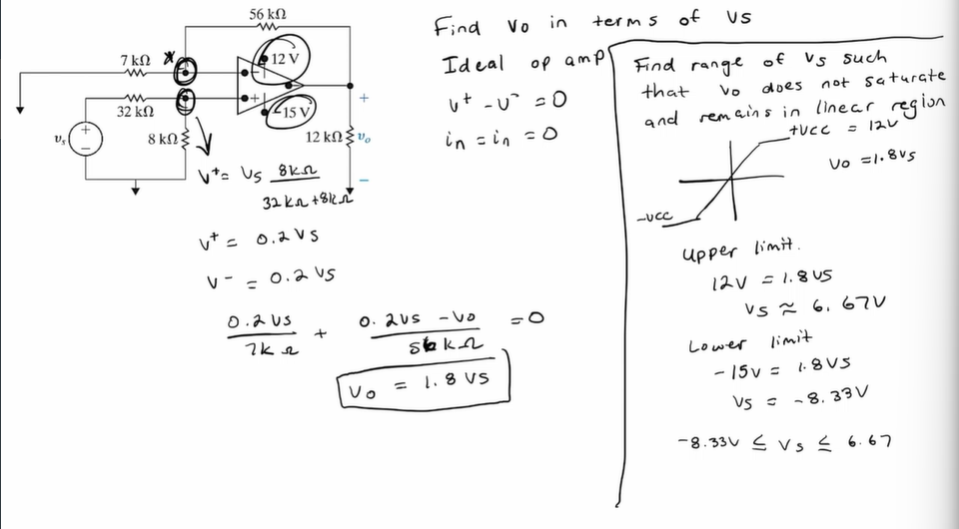 56 kΩ
7 kΩ
*
12 V
32 kΩ
15 V
vs
8 kΩ
12 kΩ
+
vo
−
V+ = Vs 8kΩ
32kΩ+8kΩ
V+ = 0.2Vs
V- = 0.2 Vs
0.2Vs + 0.2Vs - Vo = 0
7kΩ 56kΩ
Vo = 1.8 Vs
Find Vo in terms of Vs
Ideal op amp
V+ - V- = 0
in = in = 0
Find range of Vs such
that Vo does not saturate
and remains in linear region
+Vcc = 12V
Vo = 1.8Vs
-Vcc
Upper limit.
12V = 1.8Vs
Vs ≈ 6.67V
Lower limit
-15V = 1.8Vs
Vs = -8.33V
-8.33V ≤ Vs ≤ 6.67